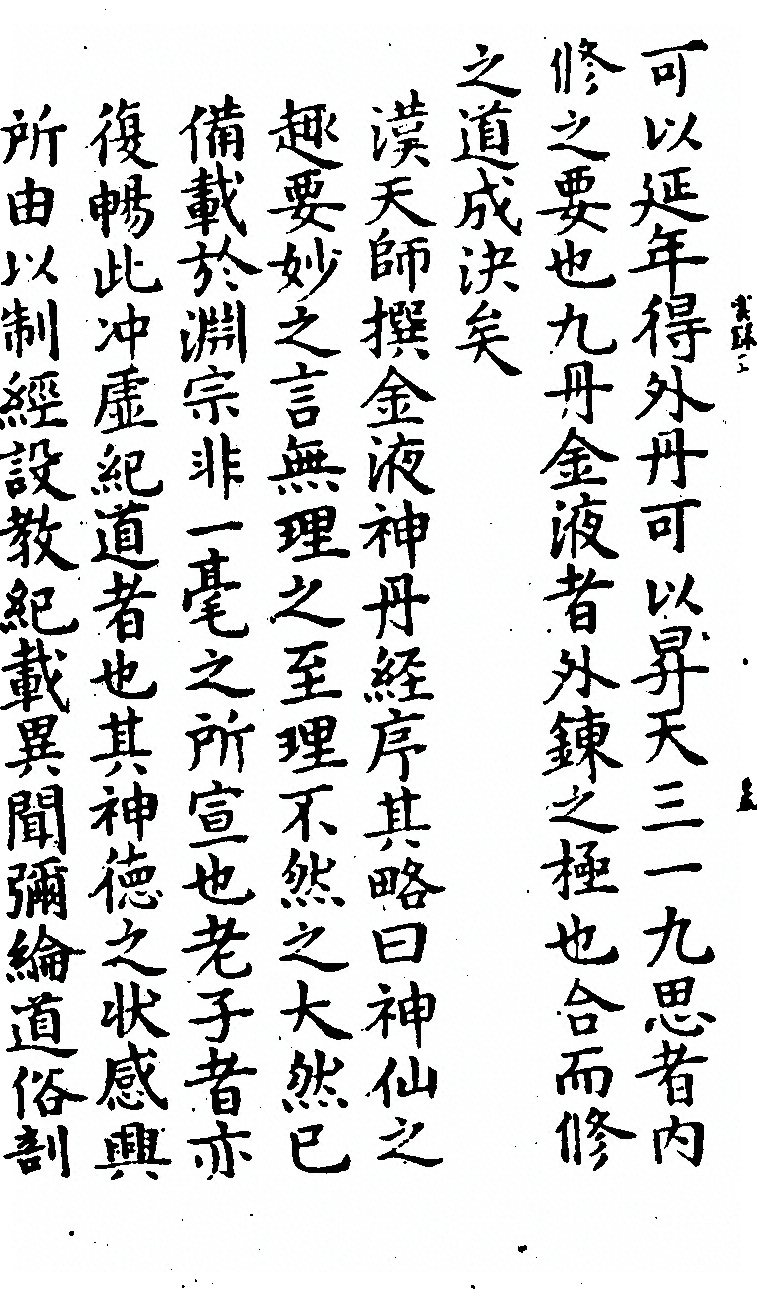 可以延年得外丹可以昇天三一九思者內
修之要也九丹金液者外鍊之極也合而修
之道成決矣
漢天師撰金液神丹経序其略曰神仙之
趣要妙之言無理之至理不然之大然已
備載於淵宗非一毫之所宣也老子者亦
復暢此冲虛紀道者也其神德之狀感興
所由以制經設教紀載異聞彌綸道俗剖